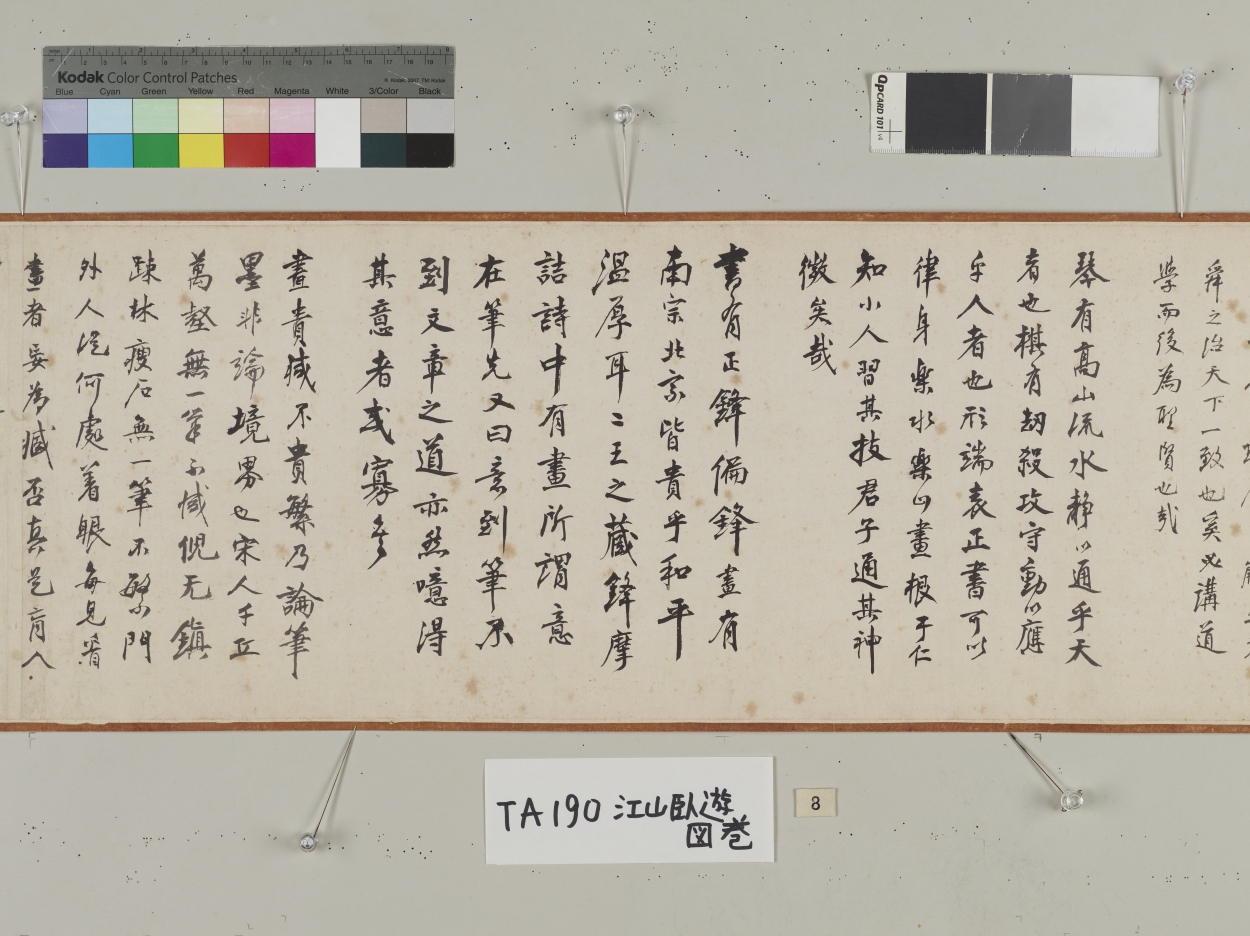 Kodak Color Control Patches
© Kodak, 2007 TM: Kodak
Blue Cyan Green Yellow Red Magenta White 3/Color Black
QPCARD 101 v4
舜之治天下一致也奚必講道
學而後為聖賢也哉
琴有高山流水静以通乎天
者也棋有劫殺攻守動以應
乎人者也形端表正書可以
律身樂水樂山畫根于仁
知小人習其技君子通其神
微矣哉
書有正鋒偏鋒畫有
南宗北宗皆貴乎和平
温厚耳二王之藏鋒摩
詰詩中有畫所謂意
在筆先又曰意到筆不
到文章之道亦然噫得
其意者或寡矣
畫貴减不貴繁乃論筆
墨非論境界也宋人千丘
萬壑無一筆不减倪元鎮
踈林瘦石無一筆不繁門
外人從何處着眼每見
畫者妄為臧否真是盲人
TA190 江山臥遊
図巻
8